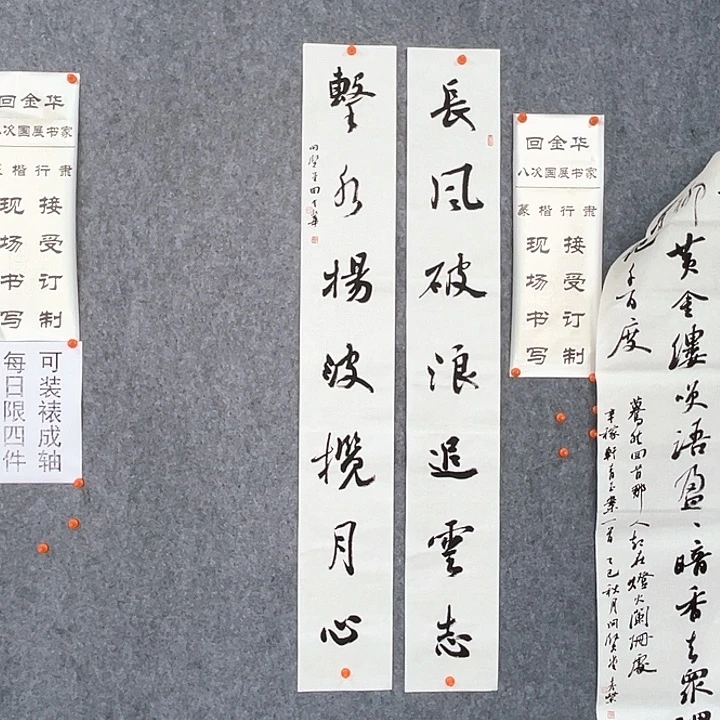 回金华
次国展书家
楷行隶
接受订制
现场书写
可装裱成轴
每日限四件
長風破浪追雲志
擊水揚波攬月心
问賢堂回金華
回金华
八次国展书家
篆楷行隶
接受订制
现场书写
黄金縷笑語盈、暗香去眾
千百度
驀然回首那人却在燈火闌珊處
辛稼軒青玉案一首乙巳秋月问賢堂